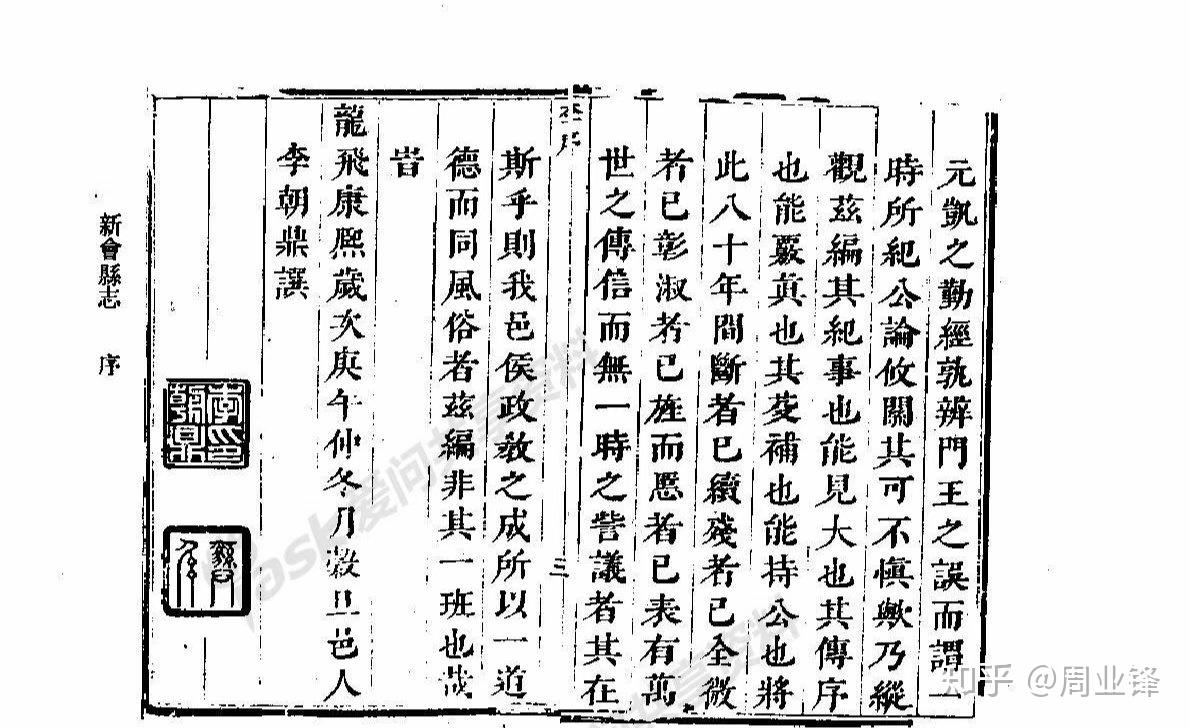 元凱之勤經孰辨門王之誤而謂一
時所紀公論攸關其可不慎歟乃縱
觀茲編其紀事也能見大也其傳序
也能覈真也其芟補也能持公也將
此八十年間斷者已續殘者已全微
者已彰淑者已旌而慝者已表有萬
世之傳信而無一時之訾議者其在
李序
三
斯乎則我邑侯政教之成所以一道
德而同風俗者茲編非其一班也哉
旹
龍飛康熙歲次庚午仲冬月穀旦邑人
李朝鼎譔
李印朝鼎
新會縣志 序
知乎 @周业锋
爱问共享资料